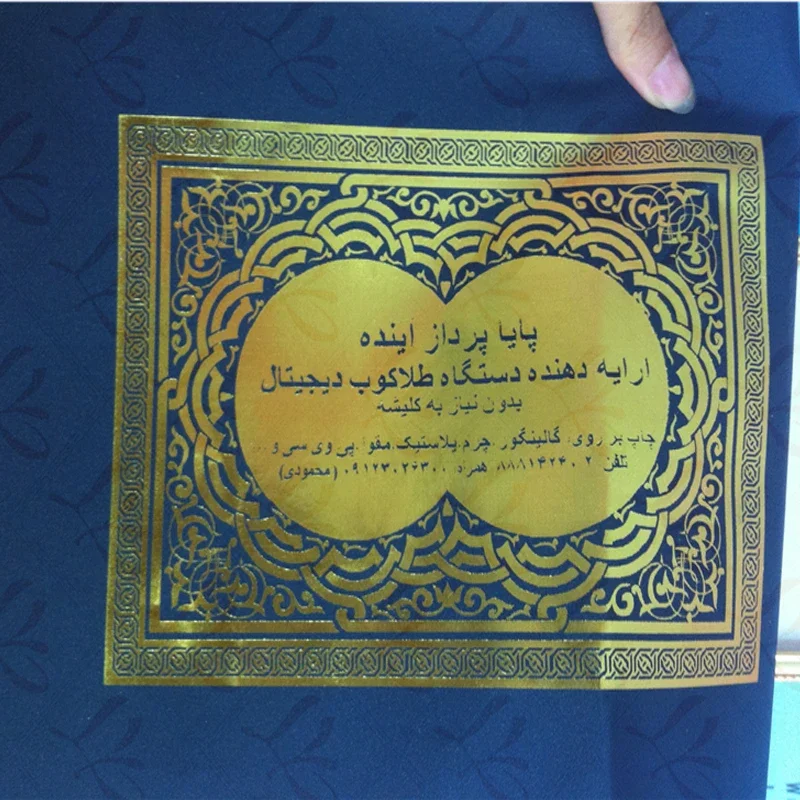 پایا پرداز آینده
ارایه دهنده دستگاه طلاکوب دیجیتال
بدون نیاز به کلیشه
چاپ بر روی: گالینگور، چرم، پلاستیک، مقوا، پی وی سی و ...
تلفن ۲ - ۸۸۸۱۴۲۴۰ همراه ۰۹۱۲۳۰۲۶۳۰۰ (محمودی)